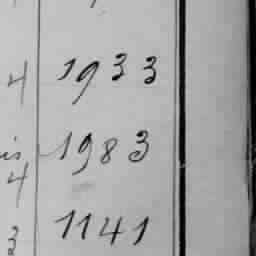 4 1933
is 1983
4
1141
3